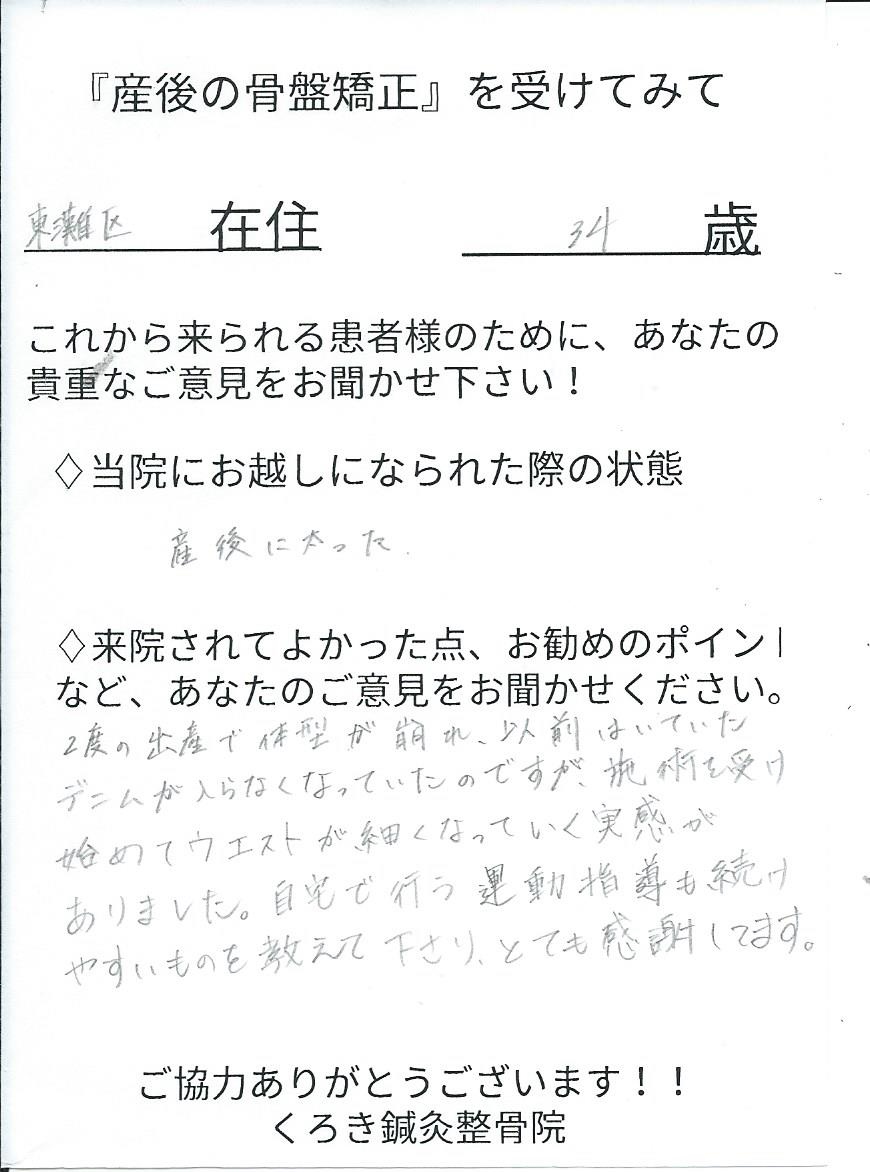 『産後の骨盤矯正』を受けてみて
東灘区 在住 34 歳
これから来られる患者様のために、あなたの
貴重なご意見をお聞かせ下さい！
◇当院にお越しになられた際の状態
産後に太った.
◇来院されてよかった点、お勧めのポイント
など、あなたのご意見をお聞かせください。
2度の出産で体型が崩れ、以前はいていた
デニムが入らなくなっていたのですが、施術を受け
始めてウエストが細くなっていく実感が
ありました。自宅で行う運動指導も続け
やすいものを教えて下さり、とても感謝してます。
ご協力ありがとうございます！！
くろき鍼灸整骨院